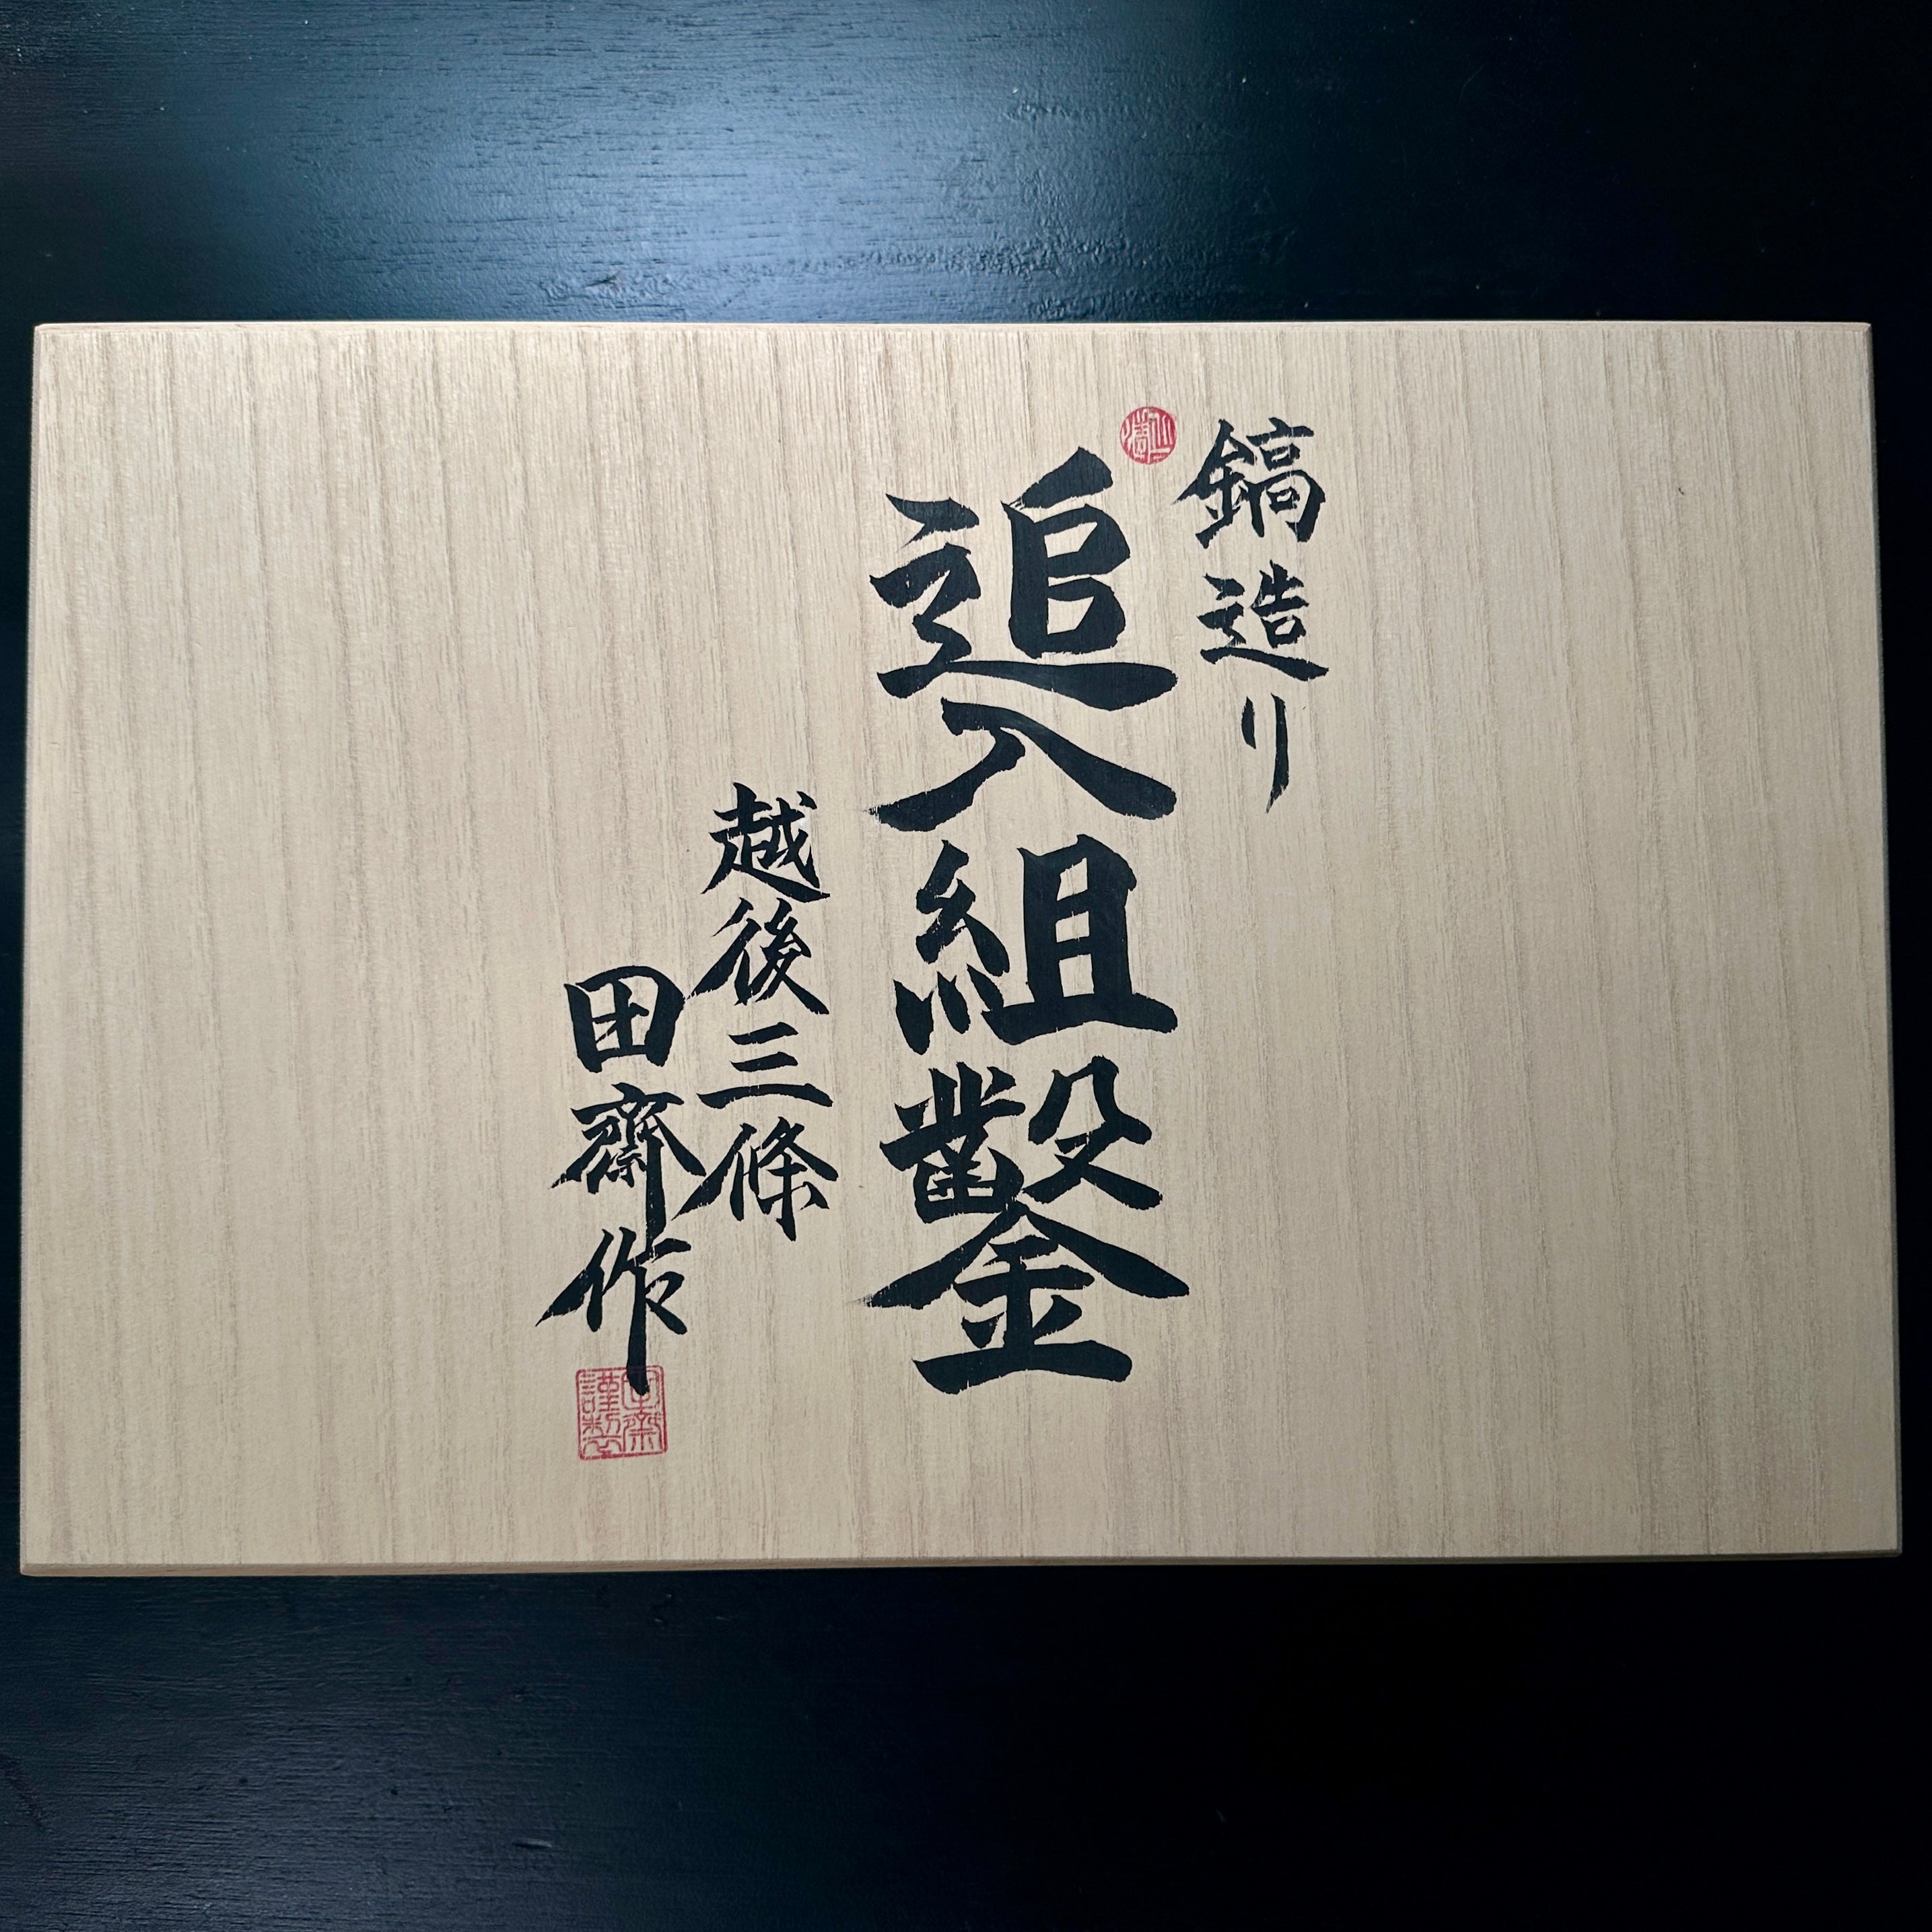 鎬造り
追入組鑿
越後三條
田齋作
田齋謹製